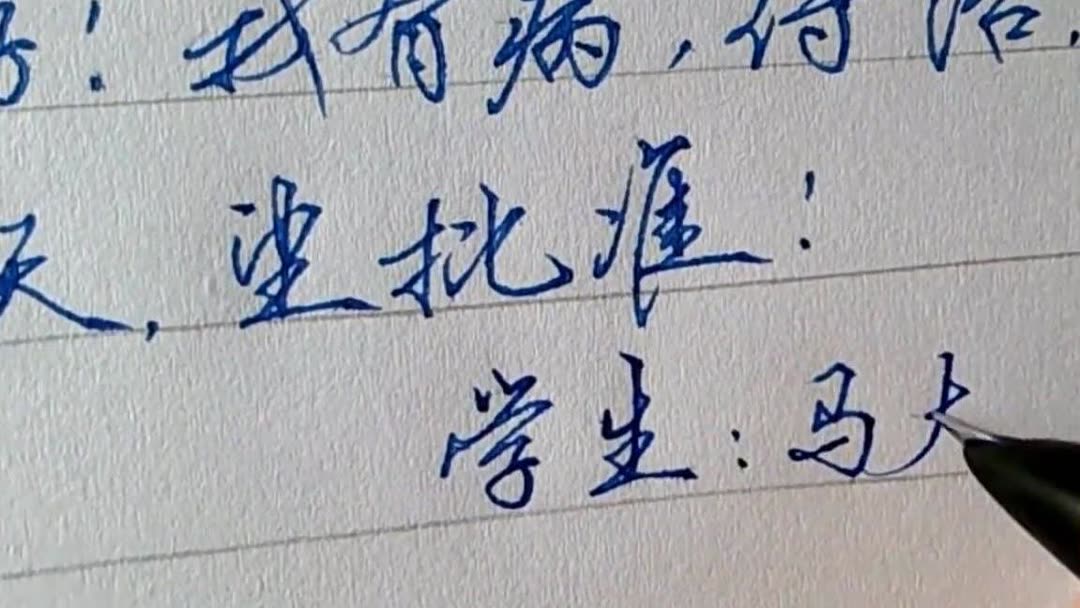 好！我有病，待治，
天，望批准！
学生：马大